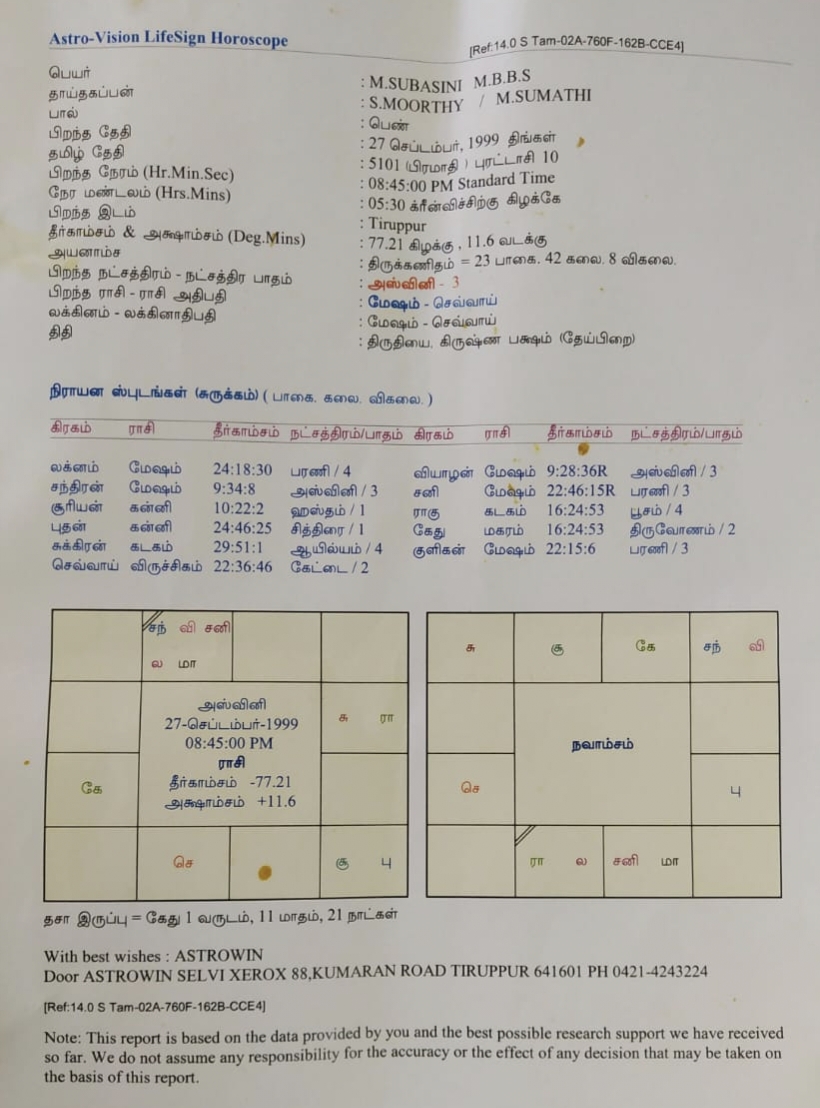 Astro-Vision LifeSign Horoscope [Ref:14.0 S Tam-02A-760F-162B-CCE4]
பெயர் : M.SUBASINI M.B.B.S
தாய்தகப்பன் : S.MOORTHY / M.SUMATHI
பால் : பெண்
பிறந்த தேதி : 27 செப்டம்பர், 1999 திங்கள்
தமிழ் தேதி : 5101 (பிரமாதி ) புரட்டாசி 10
பிறந்த நேரம் (Hr.Min.Sec) : 08:45:00 PM Standard Time
நேர மண்டலம் (Hrs.Mins) : 05:30 க்ரீன்விச்சிற்கு கிழக்கே
பிறந்த இடம் : Tiruppur
தீர்காம்சம் & அக்ஷாம்சம் (Deg.Mins) : 77.21 கிழக்கு , 11.6 வடக்கு
அயனாம்ச : திருக்கணிதம் = 23 பாகை. 42 கலை. 8 விகலை.
பிறந்த நட்சத்திரம் - நட்சத்திர பாதம் : அஸ்வினி - 3
பிறந்த ராசி - ராசி அதிபதி : மேஷம் - செவ்வாய்
லக்கினம் - லக்கினாதிபதி : மேஷம் - செவ்வாய்
திதி : திருதியை, கிருஷ்ண பக்ஷம் (தேய்பிறை)
நிராயன ஸ்புடங்கள் (சுருக்கம்) ( பாகை. கலை. விகலை. )
கிரகம் ராசி தீர்காம்சம் நட்சத்திரம்/பாதம் கிரகம் ராசி தீர்காம்சம் நட்சத்திரம்/பாதம்
லக்னம் மேஷம் 24:18:30 பரணி / 4 வியாழன் மேஷம் 9:28:36R அஸ்வினி / 3
சந்திரன் மேஷம் 9:34:8 அஸ்வினி / 3 சனி மேஷம் 22:46:15R பரணி / 3
சூரியன் கன்னி 10:22:2 ஹஸ்தம் / 1 ராகு கடகம் 16:24:53 பூசம் / 4
புதன் கன்னி 24:46:25 சித்திரை / 1 கேது மகரம் 16:24:53 திருவோணம் / 2
சுக்கிரன் கடகம் 29:51:1 ஆயில்யம் / 4 குளிகன் மேஷம் 22:15:6 பரணி / 3
செவ்வாய் விருச்சிகம் 22:36:46 கேட்டை / 2
சந் வி சனி
ல மா
அஸ்வினி
27-செப்டம்பர்-1999
08:45:00 PM
ராசி
தீர்காம்சம் -77.21
அக்ஷாம்சம் +11.6
சு ரா
கே
செ சூ பு
சு சூ கே சந் வி
நவாம்சம்
செ பு
ரா ல சனி மா
தசா இருப்பு = கேது 1 வருடம், 11 மாதம், 21 நாட்கள்
With best wishes : ASTROWIN
Door ASTROWIN SELVI XEROX 88,KUMARAN ROAD TIRUPPUR 641601 PH 0421-4243224
[Ref:14.0 S Tam-02A-760F-162B-CCE4]
Note: This report is based on the data provided by you and the best possible research support we have received
so far. We do not assume any responsibility for the accuracy or the effect of any decision that may be taken on
the basis of this report.